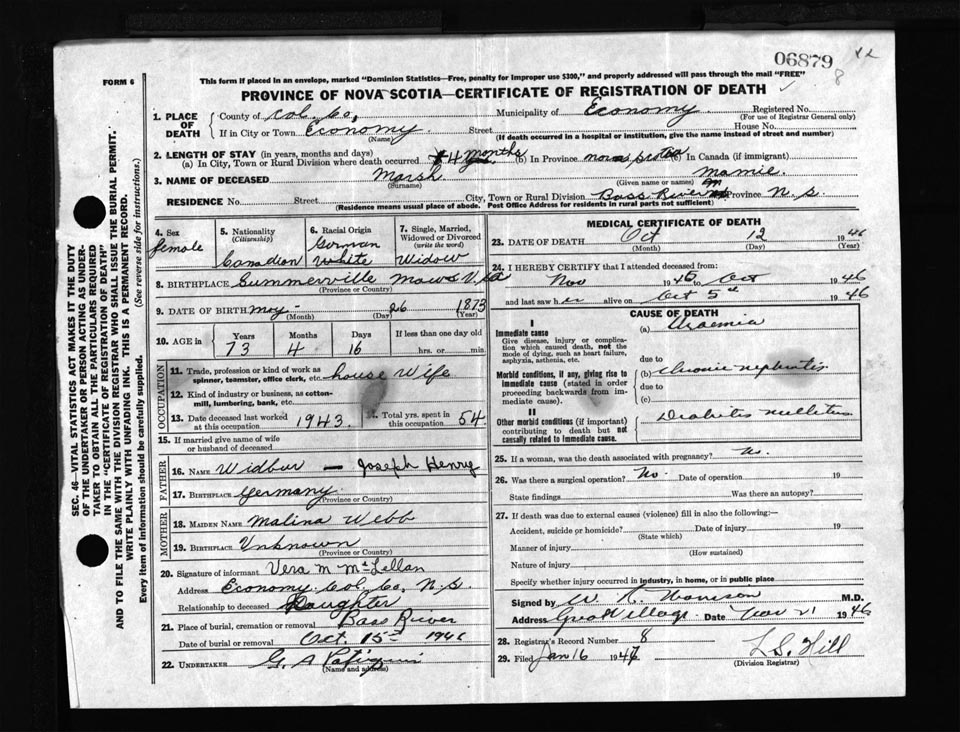 06879
8
FORM 6
This form if placed in an envelope, marked "Dominion Statistics—Free, penalty for improper use $300," and properly addressed will pass through the mail "FREE"
PROVINCE OF NOVA SCOTIA—CERTIFICATE OF REGISTRATION OF DEATH
1. PLACE OF DEATH
County of Col. Co. Municipality of Economy Registered No.
(For use of Registrar General only)
If in City or Town Economy Street House No.
(Name) (If death occurred in a hospital or institution, give the name instead of street and number)
2. LENGTH OF STAY (in years, months and days)
(a) In City, Town or Rural Division where death occurred 4 months (b) In Province nova scotia (c) In Canada (if immigrant)
3. NAME OF DECEASED Marsh Mamie
(Surname) (Given name or names)
RESIDENCE No. Street City, Town or Rural Division Bass River Province N. S.
(Residence means usual place of abode. Post Office Address for residents in rural parts not sufficient)
4. Sex female
5. Nationality (Citizenship) Canadian
6. Racial Origin German White
7. Single, Married, Widowed or Divorced (write the word) Widow
8. BIRTHPLACE Summerville
(Province or Country)
9. DATE OF BIRTH May 26 1873
(Month) (Day) (Year)
10. AGE in Years Months Days If less than one day old
73 4 16 hrs. or min.
OCCUPATION
11. Trade, profession or kind of work as spinner, teamster, office clerk, etc. house Wife
12. Kind of industry or business, as cotton-mill, lumbering, bank, etc.
13. Date deceased last worked at this occupation 1943 14. Total yrs. spent in this occupation 54
15. If married give name of wife or husband of deceased
FATHER
16. NAME Widbur — Joseph Henry
17. BIRTHPLACE Germany
(Province or Country)
MOTHER
18. MAIDEN NAME Malina Webb
19. BIRTHPLACE Unknown
(Province or Country)
20. Signature of informant Vera M McLellan
Address Economy Col. Co. N. S.
Relationship to deceased Daughter
21. Place of burial, cremation or removal Bass River
Date of burial or removal Oct. 15th 1946
22. UNDERTAKER G. A
(Name and address)
MEDICAL CERTIFICATE OF DEATH
23. DATE OF DEATH Oct 12 1946
(Month) (Day) (Year)
24. I HEREBY CERTIFY that I attended deceased from:
Nov 1945 to Oct 1946
and last saw her alive on Oct 5th 1946
CAUSE OF DEATH
I
Immediate cause
Give disease, injury or complication which caused death, not the mode of dying, such as heart failure, asphyxia, asthenia, etc.
(a) Uraemia
due to
Morbid conditions, if any, giving rise to immediate cause (stated in order proceeding backwards from immediate cause).
(b) chronic nephritis
due to
(c)
II
Other morbid conditions (if important) contributing to death but not causally related to immediate cause.
Diabetes mellitus
25. If a woman, was the death associated with pregnancy? No.
26. Was there a surgical operation? No Date of operation 19
State findings Was there an autopsy?
27. If death was due to external causes (violence) fill in also the following—
Accident, suicide or homicide? Date of injury 19
(State which)
Manner of injury
(How sustained)
Nature of injury
Specify whether injury occurred in industry, in home, or in public place
Signed by W. R. Morrison M.D.
Address Great Village Date 21 1946
28. Registrar's Record Number 8
29. Filed Jan 16 1947 L S. Hill
(Division Registrar)
SEC. 46—VITAL STATISTICS ACT MAKES IT THE DUTY
OF THE UNDERTAKER OR PERSON ACTING AS UNDER-
TAKER TO OBTAIN ALL THE PARTICULARS REQUIRED
IN THE "CERTIFICATE OF REGISTRATION OF DEATH"
AND TO FILE THE SAME WITH THE DIVISION REGISTRAR WHO SHALL ISSUE THE BURIAL PERMIT.
WRITE PLAINLY WITH UNFADING INK. THIS IS A PERMANENT RECORD.
Every item of information should be carefully supplied. (See reverse side for instructions.)